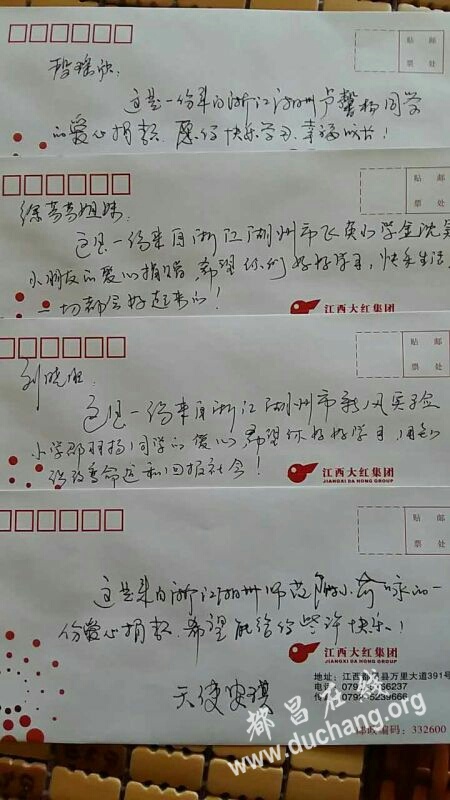 贴 邮
票 处
这是一份来自浙江湖州卢馨杨同学
的爱心捐款 愿你快乐学习、幸福成长！
贴 邮
票 处
徐亮亮姐妹：
这是一份来自浙江湖州市飞英小学金沈昊
小朋友的爱心捐赠，希望你们好好学习，快乐生活
一切都会好起来的！
江西大红集团
贴 邮
票 处
刘晓
这是一份来自浙江湖州市新风实验
小学郡羽扬同学的爱心 希望你好好学习，用知
识改变命运和回报社会！
江西大红集团
JIANGXI DA HONG GROUP
贴 邮
票 处
这是来自浙江湖州师范附小 咏的一
份爱心捐款 希望能给你些许快乐！
江西大红集团
JIANGXI DA HONG GROUP
天使安琪
地址：江西都昌县万里大道391号
电话 079 66237
传 0792-5239666
都昌在线
www.duchang.org
邮政编码：332600